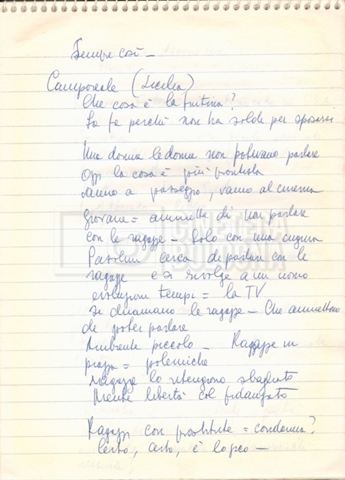 Sempre così —
Camporeale (Sicilia)
Che cosa è la fuitina?
La fa perché non ha soldi per sposarsi
Una donna le donne non potevano parlare
Oggi la cosa è più
vanno a passeggio, vanno al cinema
Giovane = ammette di non parlare
con le ragazze — Solo con una cugina
Pasolini cerca di parlare con le
ragazze e si rivolge a un uomo
evoluzione tempi = la TV
si chiamano le ragazze — Che ammettono
di poter parlare
Ambiente piccolo — Ragazze in
piazza = polemiche
ragazze lo ritengono sbagliato
Niente libertà col fidanzato
Ragazzi con prostitute = condanna?
Certo, certo, è logico —